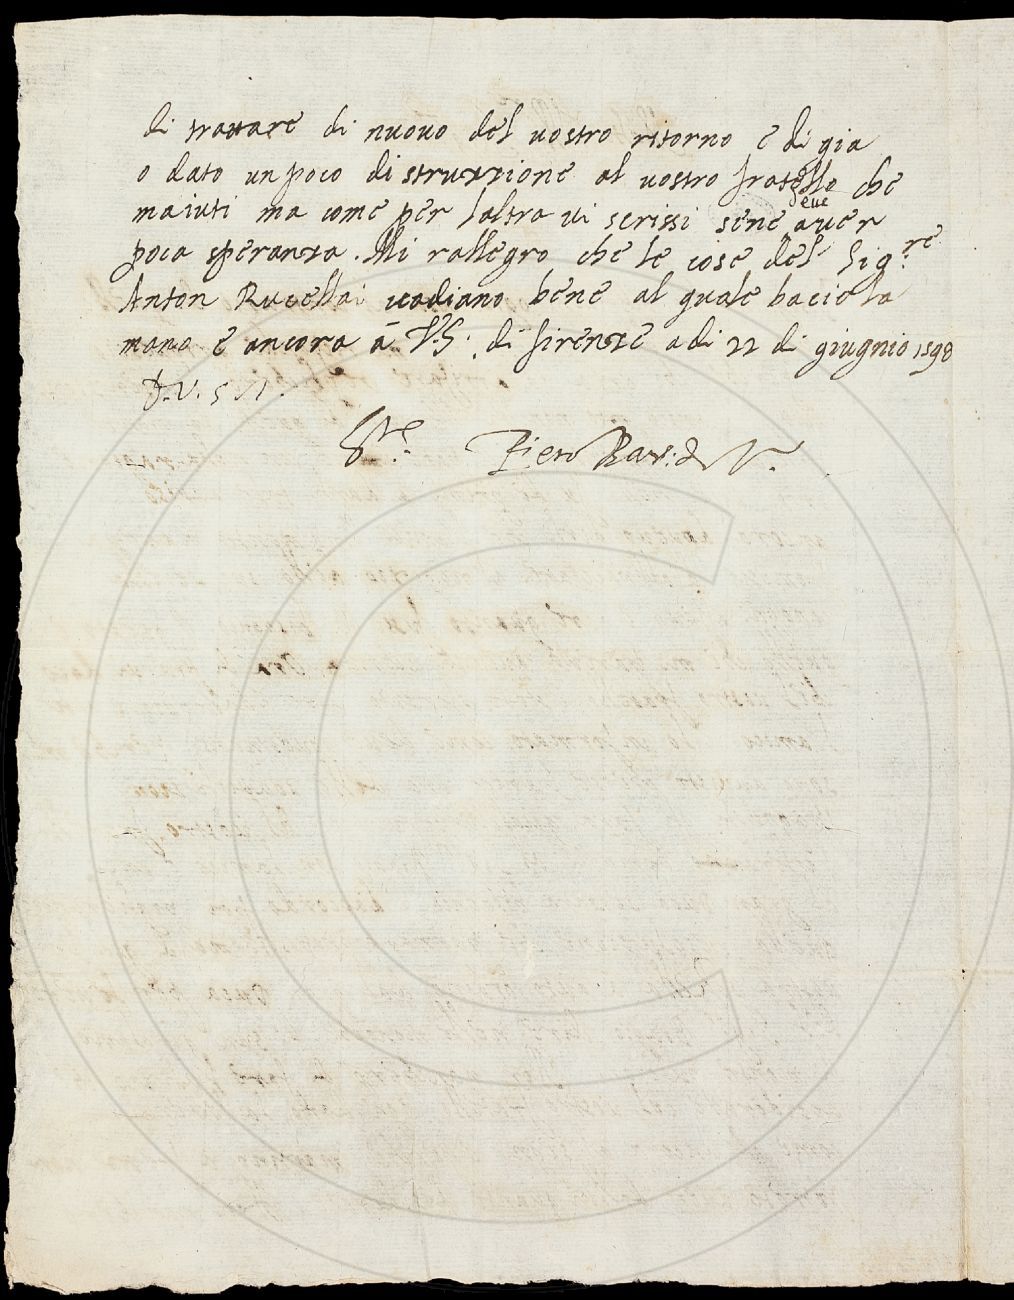 di trattare di nuovo del vostro ritorno e di gia
o dato un poco di struzzione al vostro fratello che
maiuti ma come per laltra vi scrissi sene deve aver
poca speranza. Mi rallegro che le cose del Sig.re
Anton Rucellai vadiano bene al quale bacio la
mano e ancora à V.S. di firenze a di 22 di giugnio 1598
D.V.S.M.
Ser.re Piero